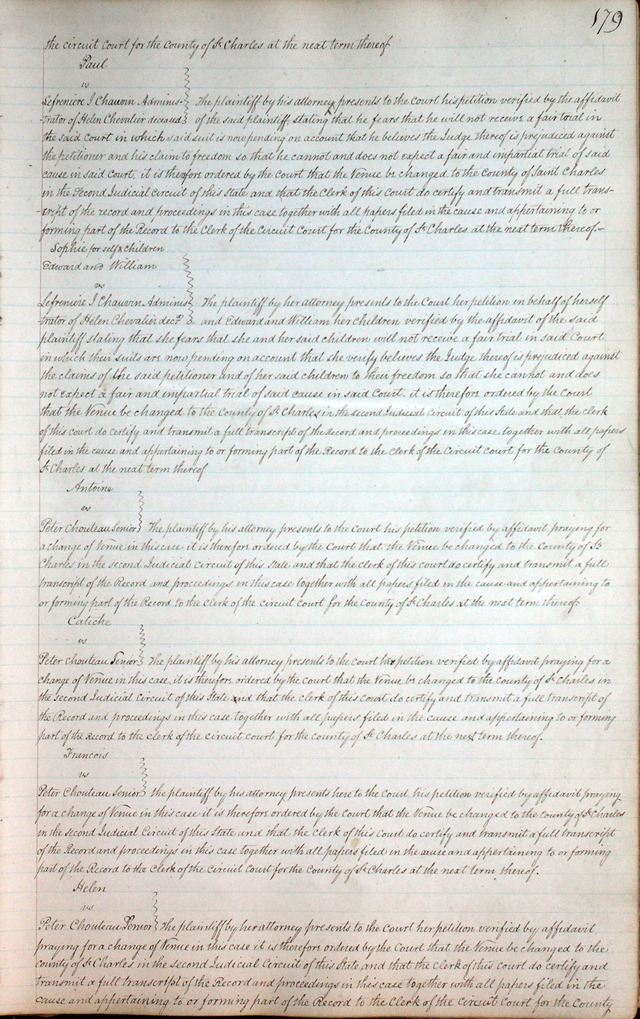 179
the circuit court for the County of St Charles at the next term thereof
Paul
vs
Lefreniere J Chauvin Adminis- The plaintiff by his attorney presents to the Court his petition verified by the affidavit
trator of Helen Chevalier deceased of the said plaintiff stating that he fears that he will not receive a fair trial in
the said Court in which said suit is now pending on account that he believes the Judge thereof is prejudiced against
the petitioner and his claim to freedom so that he cannot and does not expect a fair and impartial trial of said
cause in said court, it is therefore ordered by the Court that the Venue be changed to the County of Saint Charles
in the Second Judicial Circuit of this State and that the Clerk of this Court do certify and transmit a full trans-
-cript of the record and proceedings in this case together with all papers filed in the cause and appertaining to or
forming part of the Record to the Clerk of the Circuit Court for the County of St Charles at the next term thereof.-
Sophie for self & children
Edward and William
vs
Lefreniere J Chauvin Adminis The plaintiff by her attorney presents to the Court her petition in behalf of herself
trator of Helen Chevalier decd and Edward and William her children verified by the affidavit of the said
plaintiff stating that she fears that she and her said children will not receive a fair trial in said Court
in which their suits are now pending on account that she verily believes the Judge thereof is prejudiced against
the claims of the said petitioner and of her said children to their freedom so that she cannot and does
not expect a fair and impartial trial of said cause in said Court. it is therefore ordered by the Court
that the Venue be changed to the County of St Charles in the second Judicial Circuit of this State and that the clerk
of this court do certify and transmit a full transcript of the Record and proceedings in this case together with all papers
filed in the cause and appertaining to or forming part of the Record to the Clerk of the Circuit Court for the County of
St Charles at the next term thereof
Antoine
vs
Peter Chouteau Senior The plaintiff by his attorney presents to the Court his petition verified by affidavit praying for
a change of Venue in this case it is therefore ordered by the Court that the Venue be changed to the County of St
Charles in the second Judicial Circuit of this State and that the clerk of this court do certify and transmit a full
transcript of the Record and proceedings in this case together with all papers filed in the cause and appertaining to
or forming part of the Record to the Clerk of the circuit court for the county of St Charles at the next term thereof
Caliche
vs
Peter Chouteau Senior The plaintiff by his attorney presents to the court her petition verified by affidavit praying for a
change of Venue in this case, it is therefore ordered by the court that the Venue be changed to the County of St Charles in
the second Judicial Circuit of this State and that the clerk of this court do certify and transmit a full transcript of
the Record and proceedings in this case together with all papers filed in the cause and appertaining to or forming
part of the Record to the Clerk of the circuit court for the county of St Charles at the next term thereof.
Francois
vs
Peter Chouteau Senior the plaintiff by his attorney presents here to the Court his petition verified by affidavit praying
for a change of Venue in this case it is therefore ordered by the Court that the Venue be changed to the county of St Charles
in the second Judicial Circuit of this State and that the Clerk of this Court do certify and transmit a full transcript
of the Record and proceedings in this case together with all papers filed in the cause and appertaining to or forming
part of the Record to the Clerk of the Circuit Court for the County of St Charles at the next term thereof.
Helen
vs
Peter Chouteau Senior the plaintiff by her attorney presents to the Court her petition verified by affidavit
praying for a change of Venue in this case it is therefore ordered by the Court that the Venue be changed to the
county of St Charles in the Second Judicial Circuit of this State and that the Clerk of this court do certify and
transmit a full transcript of the Record and proceedings in this case together with all papers filed in the
cause and appertaining to or forming part of the Record to the Clerk of the Circuit Court for the County